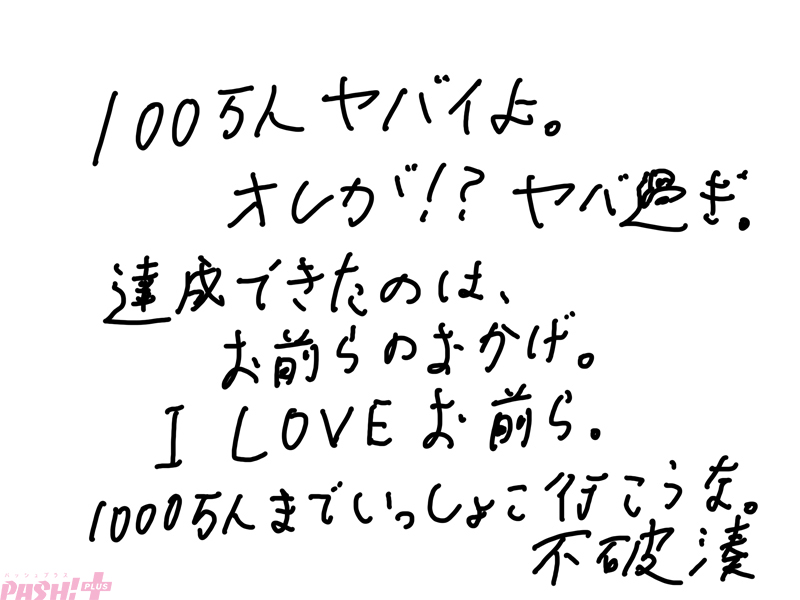 100万人ヤバイよ。
オレが!?ヤバ過ぎ。
達成できたのは、
お前らのおかげ。
I LOVEお前ら。
1000万人までいっしょに行こうな。
不破湊
パッシュプラス
PASH!+PLUS